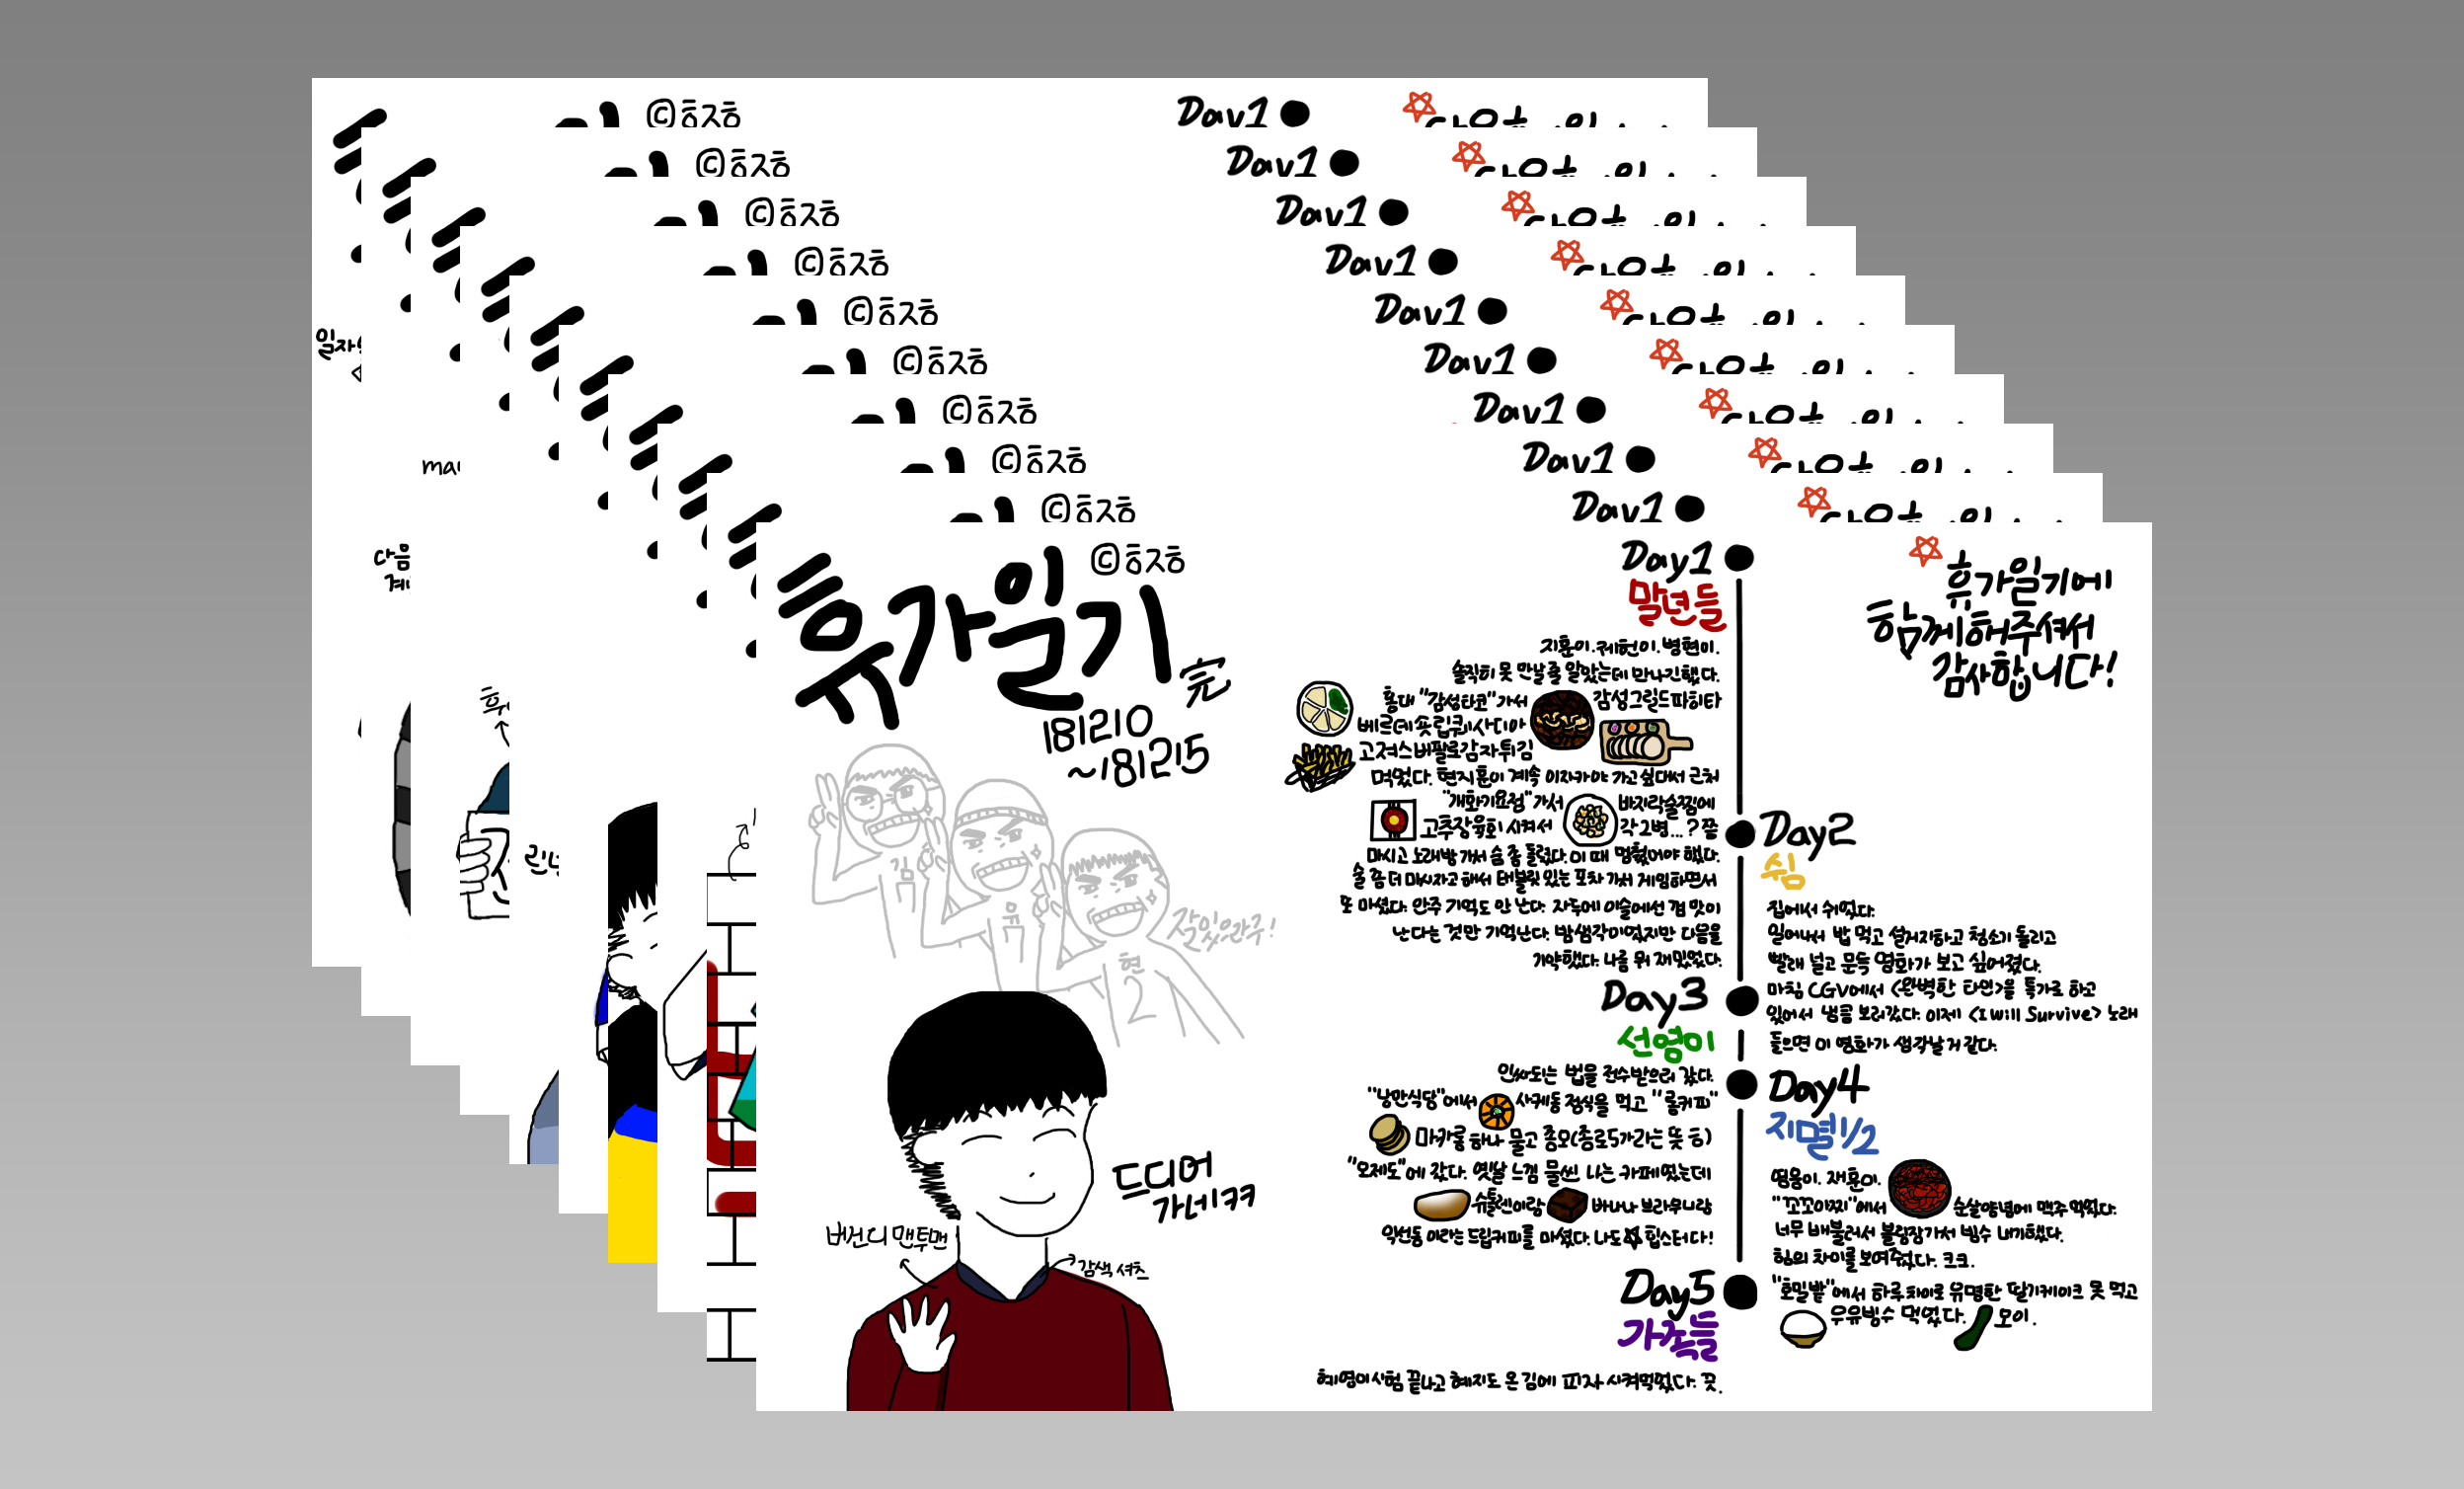 ©흥지흥
Day1
©흥지흥
Day1
©흥지흥
Day1
©흥지흥
Day1
©흥지흥
Day1
©흥지흥
Day1
©흥지흥
Day1
©흥지흥
Day1
©흥지흥
Day1
다음
©흥지흥
휴가일기 完
181210
~181215
김
유
현
2
잘있으라구!
드디어
가네ㅋㅋ
버건디 맨투맨
감색 셔츠
휴가일기에
함께해주셔서
감사합니다!
Day1
말년들
지훈이. 케헌이. 병현이.
솔직히 못 만날 줄 알았는데 만나긴했다.
홍대 "감성타코"가서 감성그릴드파히타
베르데쉬림퀘사디아
고져스버팔로감자튀김
먹었다. 현지훈이 계속 이자카야 가고싶대서 근처
"개화기요정"가서 바지락술찜에
고추장육회 시켜서 각2병...? 쯤
마시고 노래방가서 숨 좀 돌렸다. 이 때 멈췄어야 했다.
술 좀 더 마시자고 해서 테블릿 있는 포차 가서 게임하면서
또 마셨다. 안주 기억도 안 난다. 자두에 이슬에선 껌 맛이
난다는 것만 기억난다. 밤샘각이었지만 다음을
기약했다. 나름 뭐 재밌었다.
Day2
쉼
집에서 쉬었다.
일어나서 밥 먹고 설거지하고 청소기 돌리고
빨래 널고 문득 영화가 보고 싶어졌다.
마침 CGV에서 <완벽한 타인>을 특가로 하고
있어서 냉큼 보러갔다. 이제 <I will Survive> 노래
들으면 이 영화가 생각날 거 같다.
Day3
선영이
인싸되는 법을 전수받으러 갔다.
"낭만식당"에서 사케동 정식을 먹고 "롬커피"
마카롱 하나 물고 종오(종로5가라는 뜻 ㅎ)
"오제도"에 갔다. 옛날 느낌 물씬 나는 카페였는데
슈톨렌이랑 바나나 브라우니랑
익선동 이라는 드립커피를 마셨다. 나도 힙스터다!
Day4
지멸 1/2
영웅이. 재훈이.
"꼬꼬아찌"에서 순살양념에 맥주 먹었다.
너무 배불러서 볼링장가서 빙수 내기했다.
힘의 차이를 보여주었다. 크크.
"호밀밭"에서 하루 차이로 유명한 딸기케이크 못 먹고
우유빙수 먹었다. 오이.
Day5
가족들
혜영이시험 끝나고 혜지도 온 김에 피자 시켜먹었다. 끗.